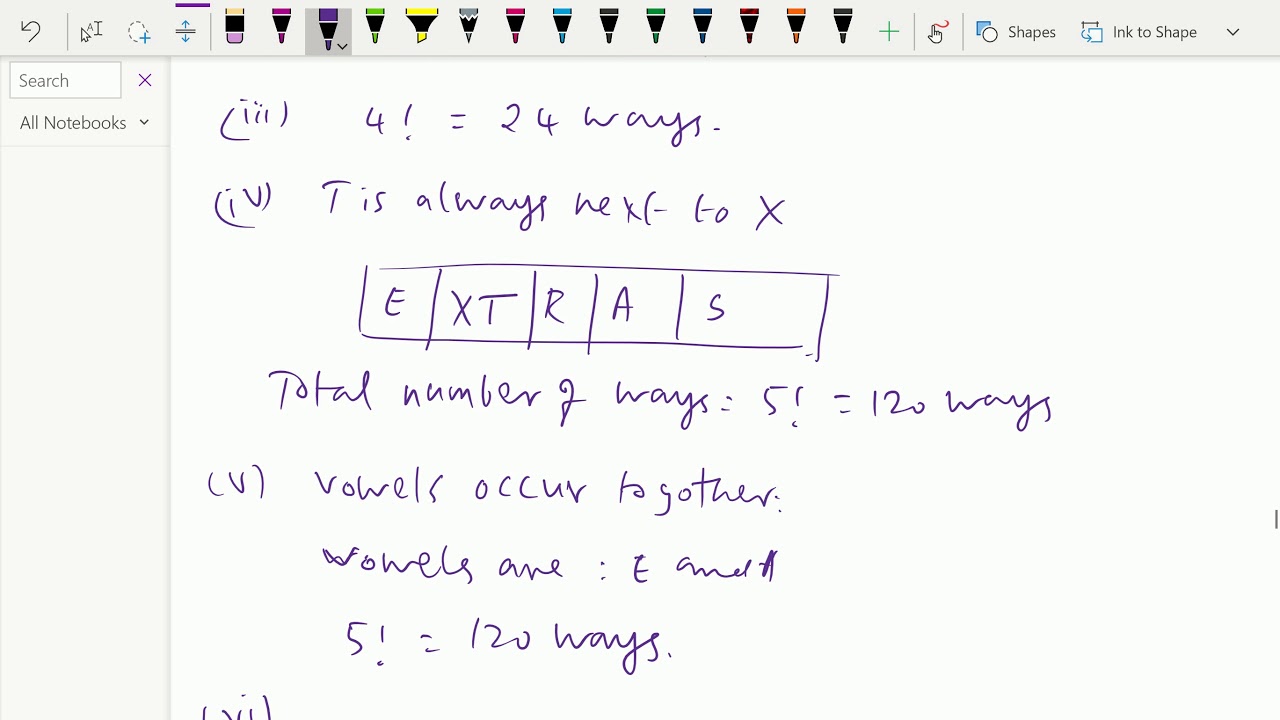 Shapes
Ink to Shape
Search
All Notebooks
(iii) 4! = 24 ways.
(iv) T is always next to X
E XT R A S
Total number of ways = 5! = 120 ways
(v) vowels occur together.
vowels are : E and A
5! = 120 ways.
(vi)